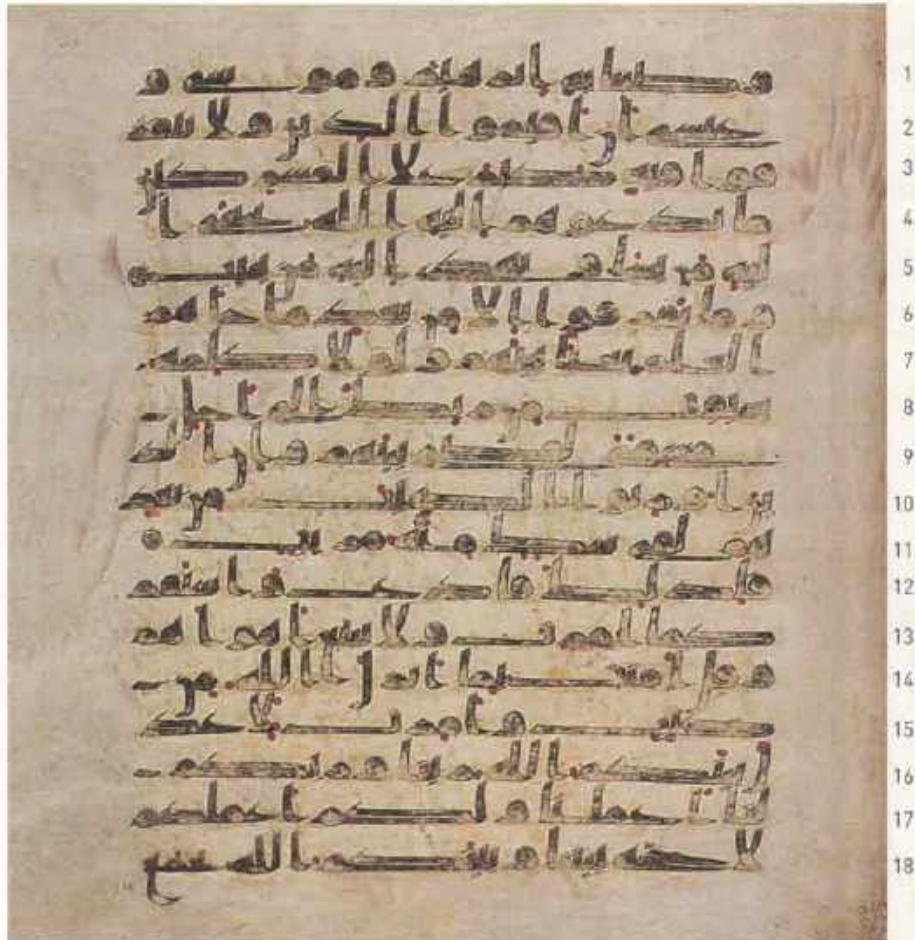 1 وصينا به ابرهيم وموسى و
2 عيسى ان اقيموا الدين ولا تتفر
3 قوا فيه كبر على المشركين
4 ما تدعوهم اليه الله يجتبي ا
5 ليه من يشا ويهدي اليه من ينيب
6 وما تفرقوا الا من بعد ما جاهم
7 العلم بغيا بينهم ولولا كلمة
8 سبقت من ربك الى اجل
9 مسمى لقضي بينهم وان الذ
10 ين اورثوا الكتب من بعد
11 هم لفي شك منه مريب
12 فلذلك فادع واستقم
13 كما امرت ولا تتبع اهواهم
14 وقل امنت بما انزل الله من
15 كتب وامرت لاعد
16 ل بينكم الله ربنا وربكم
17 لنا اعملنا ولكم اعملكم
18 لا حجة بيننا وبينكم الله يجمع